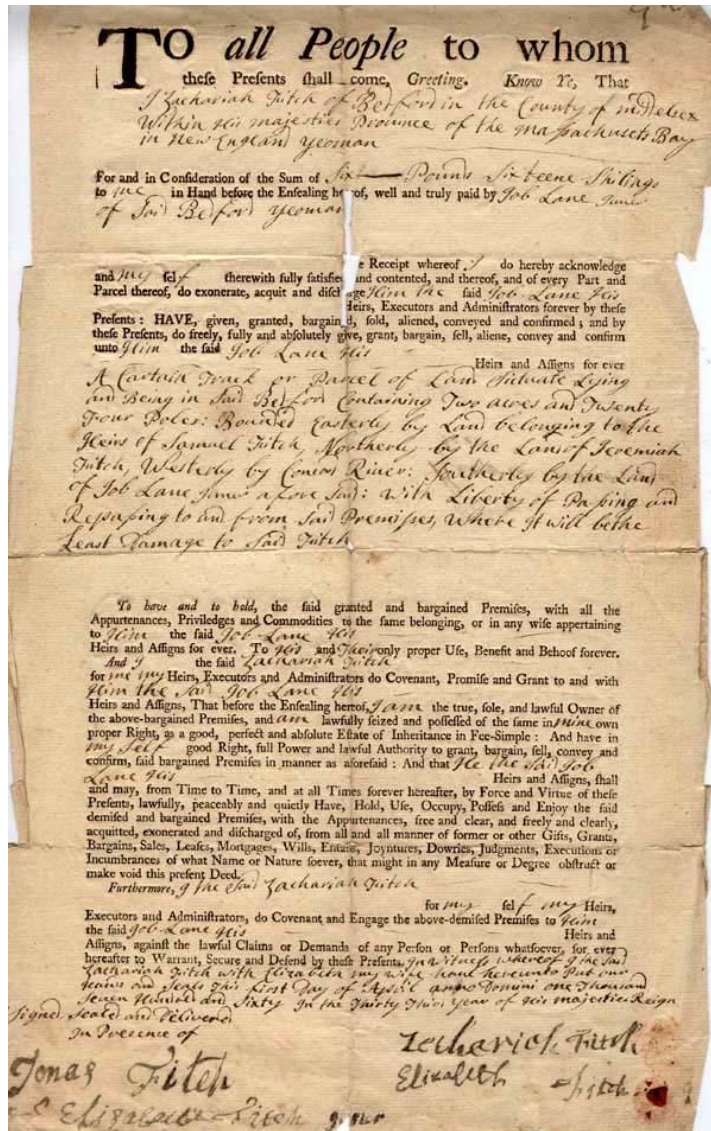 TO all People to whom
these Presents shall come, Greeting. Know Ye, That
I Zachariah Fitch of Bedford in the County of middelsex
Within His majesties Province of the massachusets Bay
in New England yeoman
For and in Consideration of the Sum of Six Pounds Sixteene Shilings
to me in Hand before the Ensealing hereof, well and truly paid by Job Lane Juner
of Said Bedford yeoman
e Receipt whereof I do hereby acknowledge
and my self therewith fully satisfied and contented, and thereof, and of every Part and
Parcel thereof, do exonerate, acquit and discharge Him the said Job Lane His
Heirs, Executors and Administrators forever by these
Presents : HAVE, given, granted, bargained, sold, aliened, conveyed and confirmed ; and by
these Presents, do freely, fully and absolutely give, grant, bargain, sell, aliene, convey and confirm
unto Him the said Job Lane His
Heirs and Assigns for ever
A Cartain Track or Parcel of Land Situate Lying
and Being in Said Bedford Containing Two acres and Twenty
Four Poles: Bounded Easterly by Land belonging to the
Heirs of Samuel Fitch, Northerly by the Land of Jeremiah
Fitch, Westerly by Concord River: Southerly by the Land
of Job Lane Juner afore Said: With Liberty of Passing and
Repassing to and from Said Premises, Where It will be the
Least Damage to Said Fitch
To have and to hold, the said granted and bargained Premises, with all the
Appurtenances, Priviledges and Commodities to the same belonging, or in any wise appertaining
to Him the said Job Lane His
Heirs and Assigns for ever. To His and Their only proper Use, Benefit and Behoof forever.
And I the said Zachariah Fitch
for me my Heirs, Executors and Administrators do Covenant, Promise and Grant to and with
Him the Said Job Lane His
Heirs and Assigns, That before the Ensealing hereof, I am the true, sole, and lawful Owner of
the above-bargained Premises, and am lawfully seized and possessed of the same in mine own
proper Right, as a good, perfect and absolute Estate of Inheritance in Fee-Simple : And have in
my Self good Right, full Power and lawful Authority to grant, bargain, sell, convey and
confirm, said bargained Premises in manner as aforesaid : And that He the Said Job
Lane His Heirs and Assigns, shall
and may, from Time to Time, and at all Times forever hereafter, by Force and Virtue of these
Presents, lawfully, peaceably and quietly Have, Hold, Use, Occupy, Possess and Enjoy the said
demised and bargained Premises, with the Appurtenances, free and clear, and freely and clearly,
acquitted, exonerated and discharged of, from all and all manner of former or other Gifts, Grants,
Bargains, Sales, Leases, Mortgages, Wills, Entails, Joyntures, Dowries, Judgments, Executions or
Incumbrances of what Name or Nature soever, that might in any Measure or Degree obstruct or
make void this present Deed.
Furthermore, I the Said Zachariah Fitch
for my self my Heirs,
Executors and Administrators, do Covenant and Engage the above-demised Premises to Him
the said Job Lane His Heirs and
Assigns, against the lawful Claims or Demands of any Person or Persons whatsoever, for ever
hereafter to Warrant, Secure and Defend by these Presents. In Witness whereof I the Said
Zachariah Fitch with Elizabeth my Wife have hereunto Put our
and Seals This First Day of April anno Domini one Thousand
Seven Hundred and Sixty In the Thirty Third Year of His majesties Reign
Signed Sealed and Delivered
In Presence of
Zachariah Fitch
Jonas Fitch
Elizabeth Fitch
Elizabeth Fitch